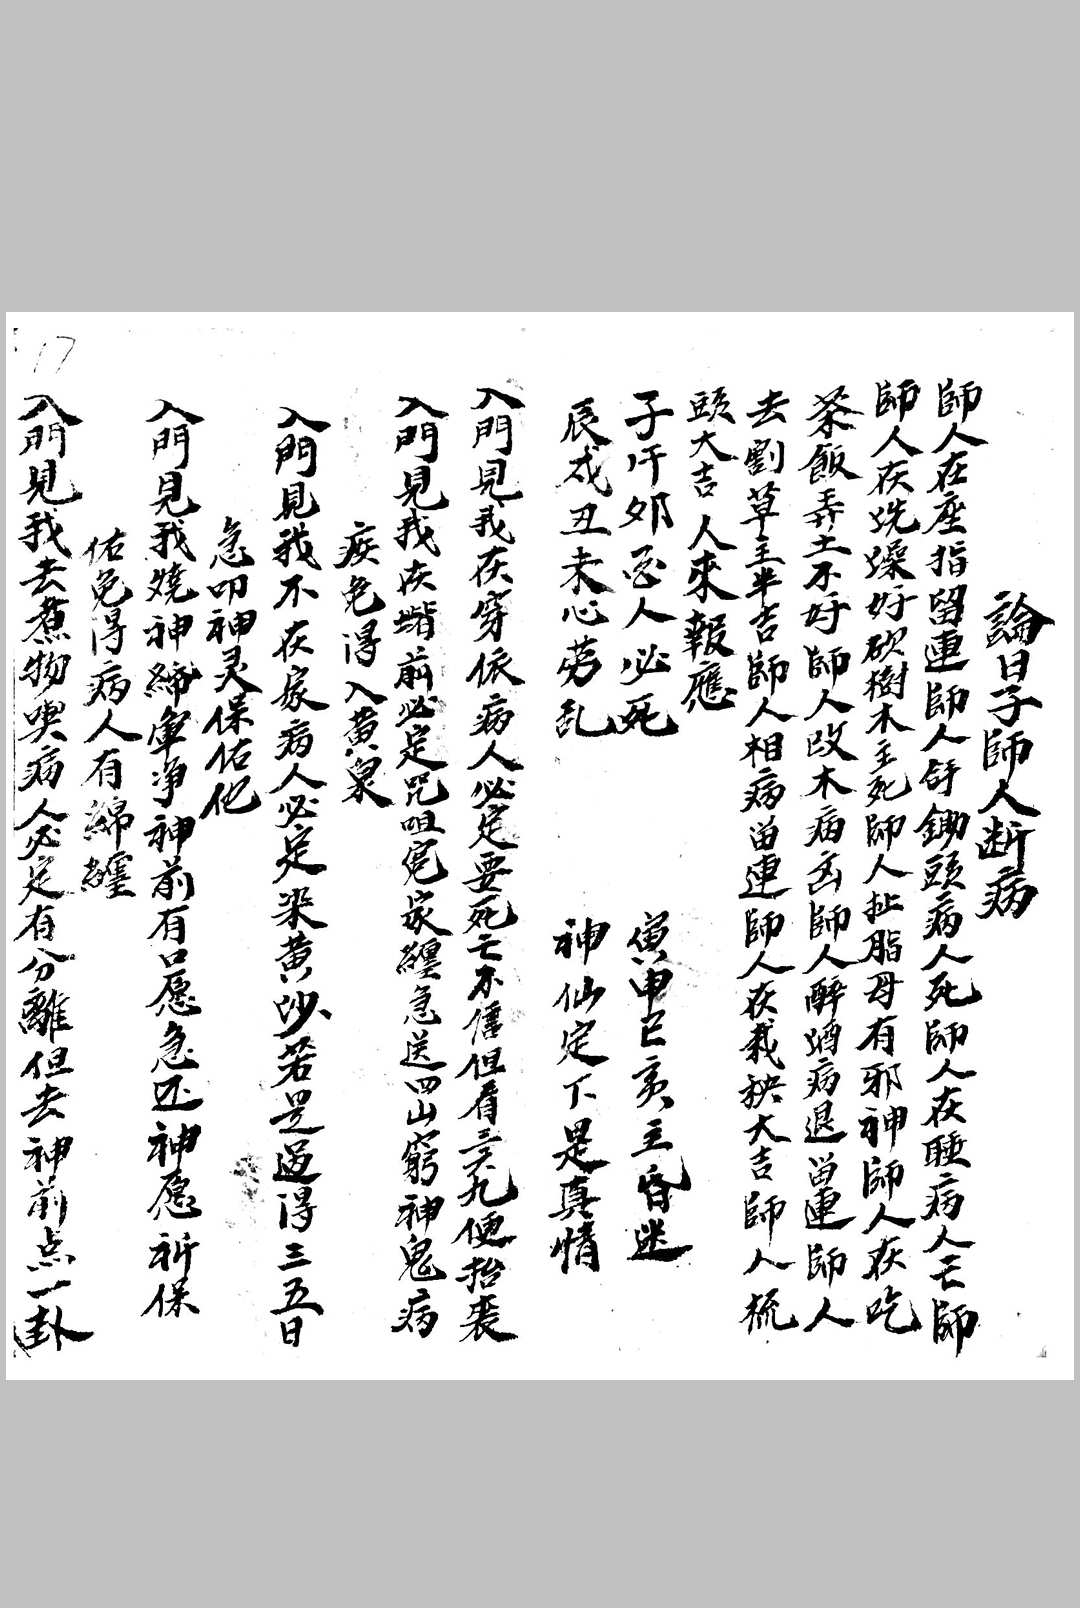 論日子師人断病
師人在座指留連師人舒鋤頭病人死師人在睡病人亡師
師人在洗澡好砍樹木主死師人扯脂母有邪神師人在吃
茶飯弄土不好師人改木病凶師人醉酒病退畄連師人
去割草主半吉師人相病畄連師人在栽秧大吉師人梳
頭大吉人來報應
子午卯酉人必死 寅申巳亥主昏迷
辰戌丑未心劳乱 神仙定下是真情
入門見我在穿依病人必定要死亡不信但看三六九便抬喪
入門見我在堦前必定咒咀冤家纏急送四山窮神鬼病
疾免得入黄泉
入門見我不在家病人必定染黄沙若是過得三五日
急叩神灵保佑他
入門見我燒神締軍净神前有口愿急还神愿祈保
佑免得病人有綿纏
入門見我去煮物喫病人必定有分離但去神前点一卦
17